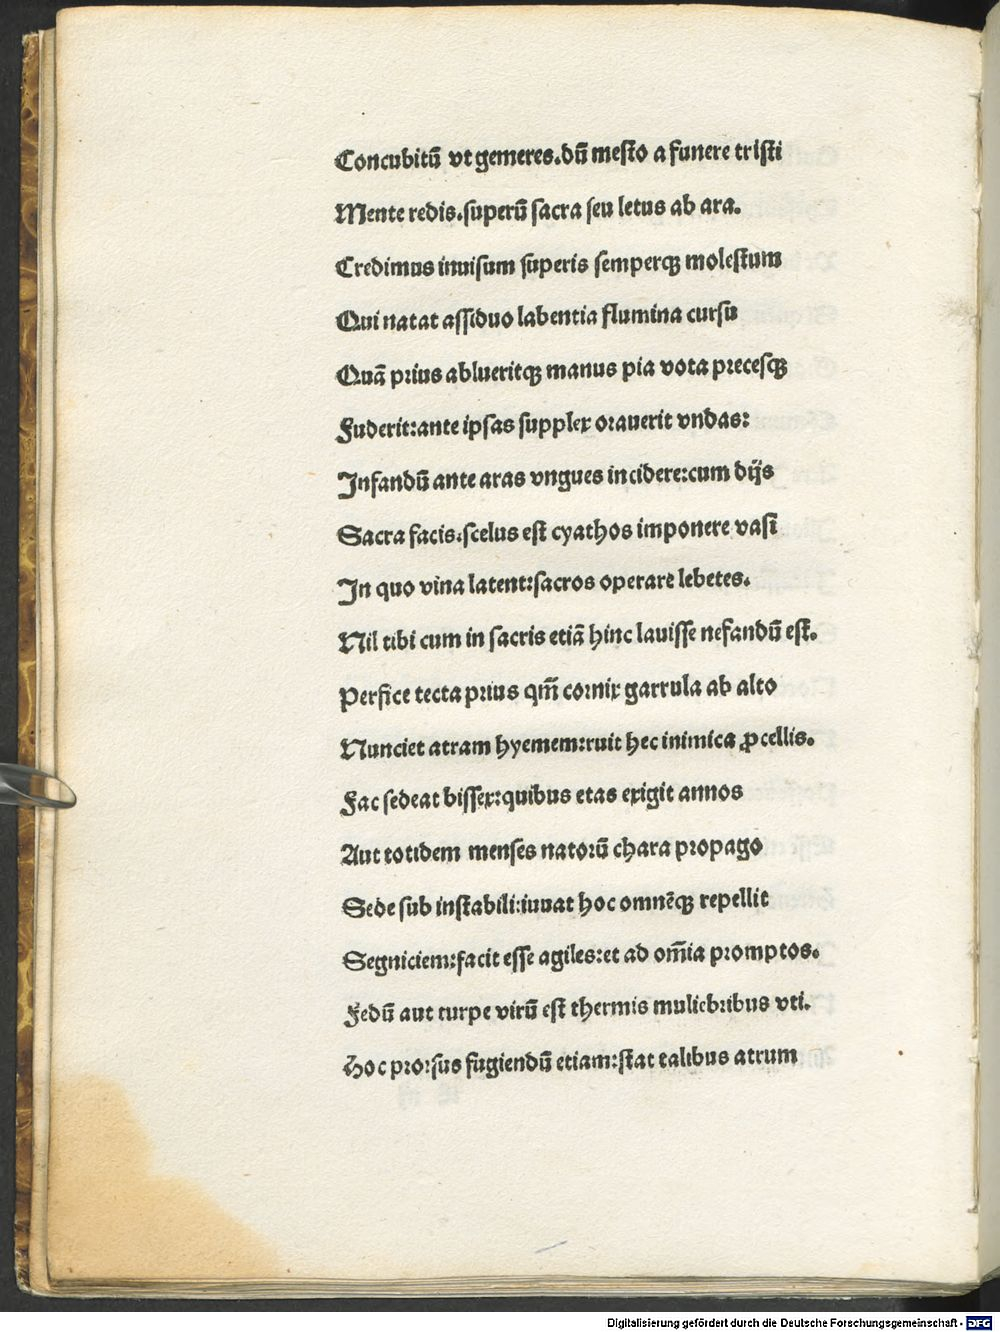 Concubitū vt gemeres.dū mesto a funere tristi
Mente redis.superū sacra seu letus ab ara.
Credimus inuisum superis semperqꝫ molestum
Qui natat assiduo labentia flumina cursu
Quā prius ablueritqꝫ manus pia vota precesqꝫ
Fuderit:ante ipsas supplex orauerit vndas:
Infandū ante aras vngues incidere:cum dijs
Sacra facis.scelus est cyathos imponere vasi
In quo vina latent:sacros operare lebetes.
Nil tibi cum in sacris etiā hinc lauisse nefandū est.
Perfice tecta prius qm̄ cornix garrula ab alto
Nunciet atram hyemem:ruit hec inimica ꝓcellis.
Fac sedeat bissex:quibus etas exigit annos
Aut totidem menses natorū chara propago
Sede sub instabili:iuuat hoc omnēqꝫ repellit
Segniciem:facit esse agiles:et ad om̄ia promptos.
Fedū aut turpe virū est thermis muliebribus vti.
Hoc prorsus fugiendū etiam:stat talibus atrum
Digitalisierung gefördert durch die Deutsche Forschungsgemeinschaft - DFG